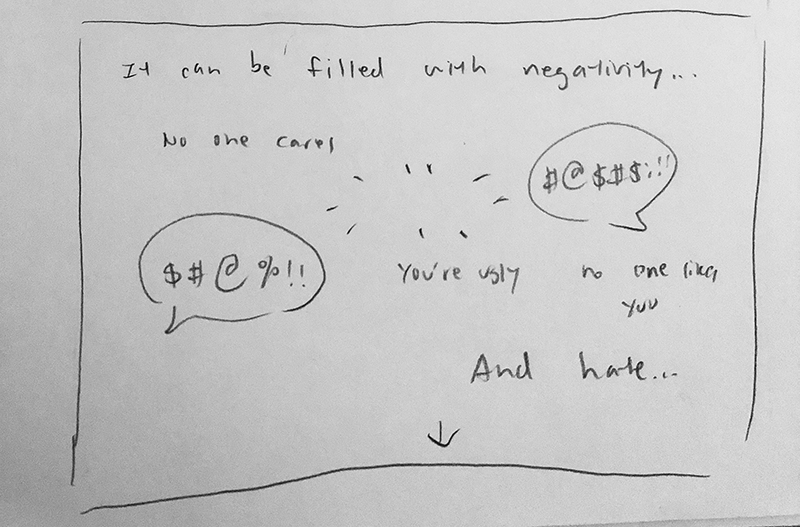 It can be filled with negativity...
No one cares
#@$#$!!!
$#@%!!
You're ugly
no one likes
you
And hate...